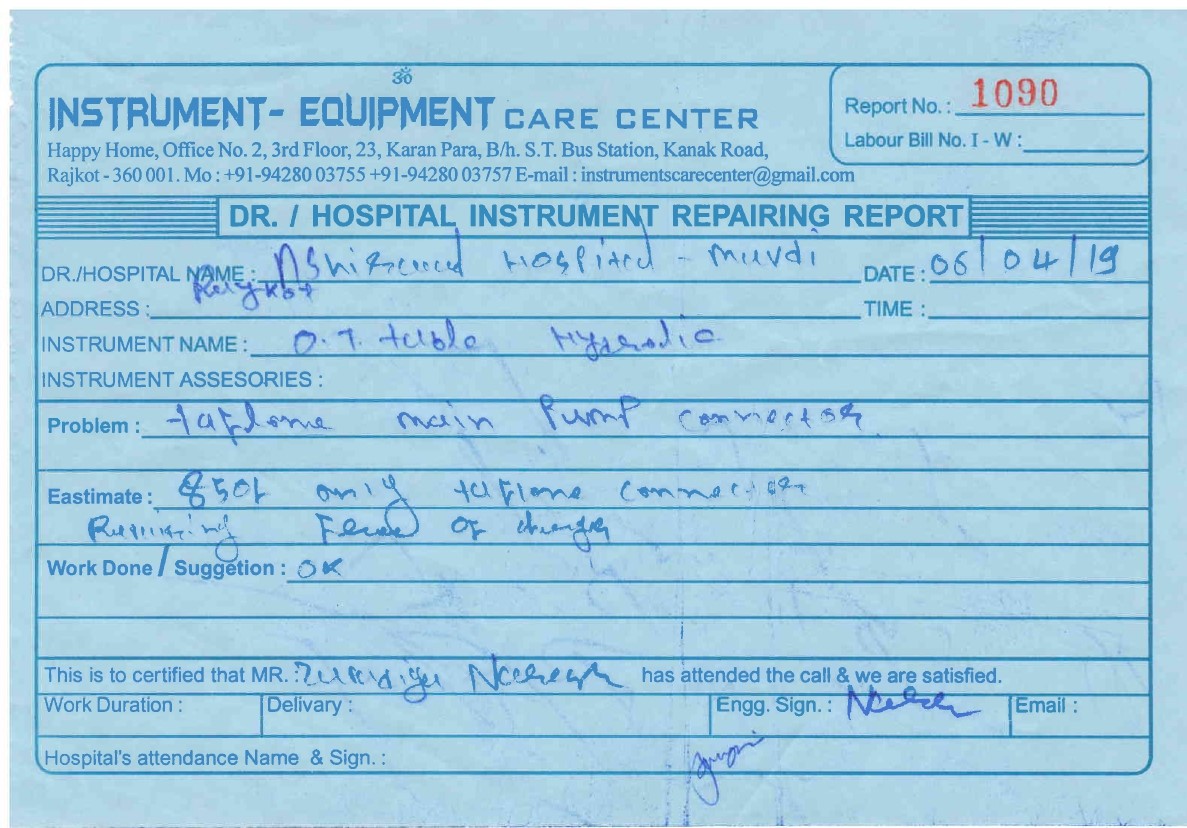 ॐ
INSTRUMENT- EQUIPMENT CARE CENTER
Happy Home, Office No. 2, 3rd Floor, 23, Karan Para, B/h. S.T. Bus Station, Kanak Road,
Rajkot - 360 001. Mo : +91-94280 03755 +91-94280 03757 E-mail : instrumentscarecenter@gmail.com
Report No. : 1090
Labour Bill No. I - W :
DR. / HOSPITAL INSTRUMENT REPAIRING REPORT
DR./HOSPITAL NAME : Hospital - DATE : 06/04/19
ADDRESS : Rajkot TIME :
INSTRUMENT NAME : O.T. table
INSTRUMENT ASSESORIES :
Problem : taflone main Pump connector
Eastimate : 850/- only taflone connector
OK
Work Done / Suggetion : OK
This is to certified that MR. : has attended the call & we are satisfied.
Work Duration : Delivery : Engg. Sign. : Email :
Hospital's attendance Name & Sign. :